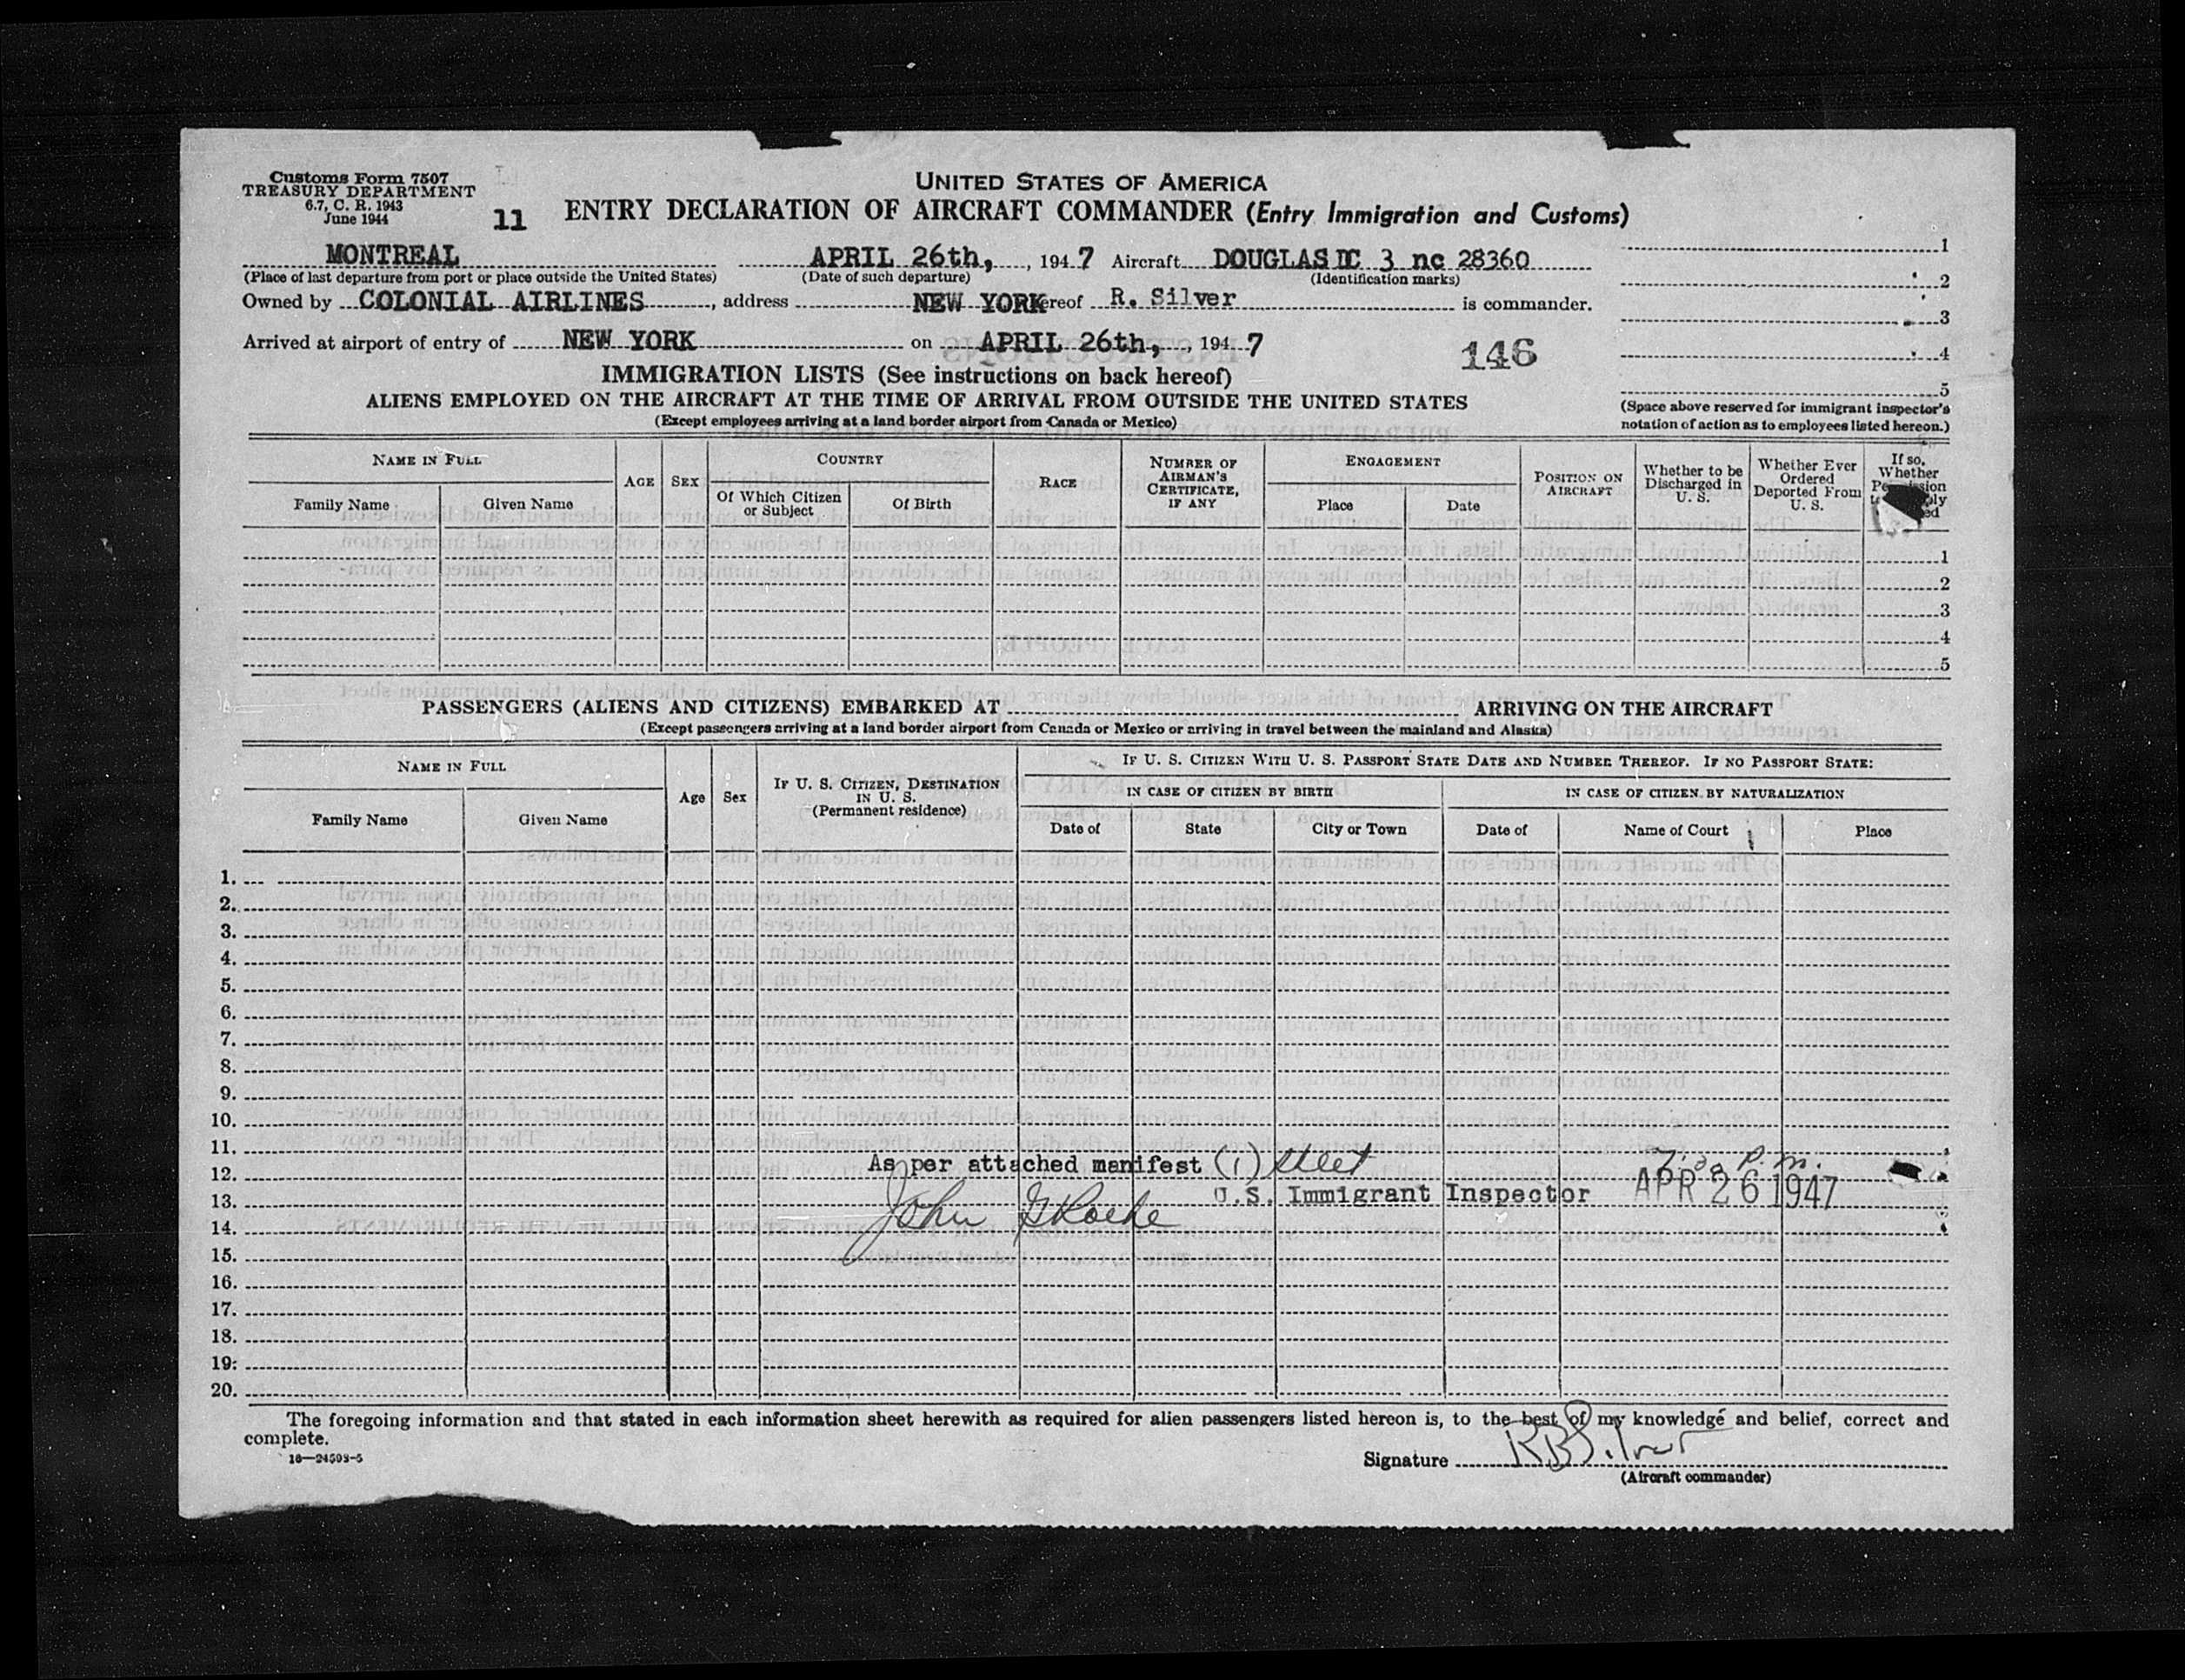 Customs Form 7507
TREASURY DEPARTMENT
6.7, C. R. 1943
June 1944
11
UNITED STATES OF AMERICA
ENTRY DECLARATION OF AIRCRAFT COMMANDER (Entry Immigration and Customs)
MONTREAL APRIL 26th, , 1947 Aircraft DOUGLAS DC 3 nc 28360
(Place of last departure from port or place outside the United States) (Date of such departure) (Identification marks)
Owned by COLONIAL AIRLINES , address NEW YORK ereof R. Silver is commander.
Arrived at airport of entry of NEW YORK on APRIL 26th, , 1947
146
1
2
3
4
5
(Space above reserved for immigrant inspector's
notation of action as to employees listed hereon.)
IMMIGRATION LISTS (See instructions on back hereof)
ALIENS EMPLOYED ON THE AIRCRAFT AT THE TIME OF ARRIVAL FROM OUTSIDE THE UNITED STATES
(Except employees arriving at a land border airport from Canada or Mexico)
NAME IN FULL
Family Name Given Name
AGE
SEX
COUNTRY
Of Which Citizen or Subject
Of Birth
RACE
NUMBER OF AIRMAN'S CERTIFICATE, IF ANY
ENGAGEMENT
Place Date
POSITION ON AIRCRAFT
Whether to be Discharged in U. S.
Whether Ever Ordered Deported From U. S.
If so, Whether
1
2
3
4
5
PASSENGERS (ALIENS AND CITIZENS) EMBARKED AT ARRIVING ON THE AIRCRAFT
(Except passengers arriving at a land border airport from Canada or Mexico or arriving in travel between the mainland and Alaska)
NAME IN FULL
Family Name Given Name
Age
Sex
IF U. S. CITIZEN, DESTINATION IN U. S.
(Permanent residence)
IF U. S. CITIZEN WITH U. S. PASSPORT STATE DATE AND NUMBER THEREOF. IF NO PASSPORT STATE:
IN CASE OF CITIZEN BY BIRTH IN CASE OF CITIZEN BY NATURALIZATION
Date of State City or Town Date of Name of Court Place
1.
2.
3.
4.
5.
6.
7.
8.
9.
10.
11.
12. As per attached manifest (1) sheet 7:30 P.M.
13. U.S. Immigrant Inspector APR 26 1947
14. John
15.
16.
17.
18.
19.
20.
The foregoing information and that stated in each information sheet herewith as required for alien passengers listed hereon is, to the best of my knowledge and belief, correct and
complete.
16—24593-5
Signature RB Silver
(Aircraft commander)